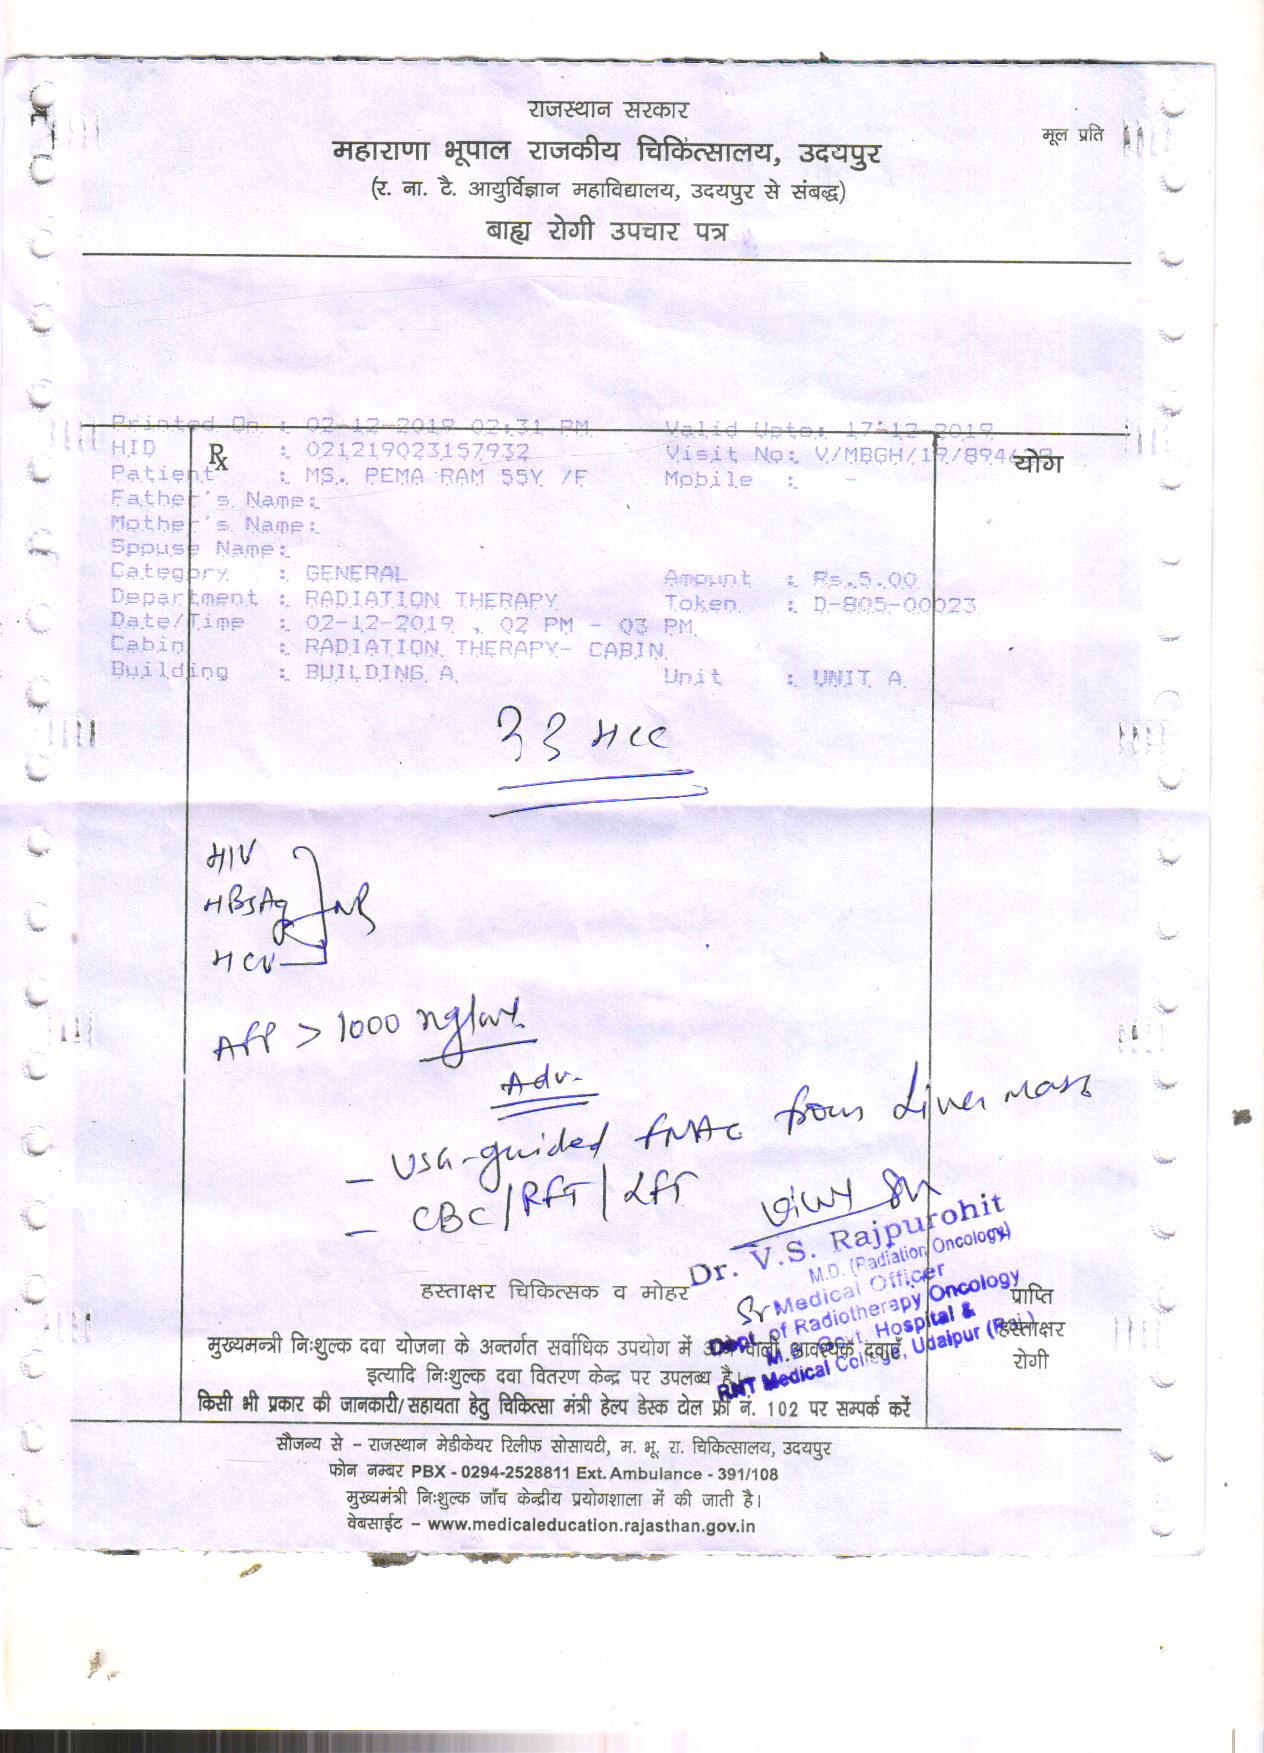 राजस्थान सरकार
मूल प्रति
महाराणा भूपाल राजकीय चिकित्सालय, उदयपुर
(र. ना. टै. आयुर्विज्ञान महाविद्यालय, उदयपुर से संबद्ध)
बाह्य रोगी उपचार पत्र
Printed On : 02-12-2019 02:31 PM Valid Upto: 17-12-2019
HID : 021219023157932 Visit No: V/MBGH/19/894
Rx
योग
Patient : MS. PEMA RAM 55Y /F Mobile : -
Father's Name:
Mother's Name:
Spouse Name:
Category : GENERAL Amount : Rs.5.00
Department : RADIATION THERAPY Token : D-805-00023
Date/Time : 02-12-2019 , 02 PM - 03 PM
Cabin : RADIATION THERAPY- CABIN
Building : BUILDING A Unit : UNIT A
HCC
HIV
HBsAg
HCV
AFP > 1000 ng/ml
Adv.
- USG-guided FNAC from Liver mass
- CBC/RFT/LFT
Dr. V.S. Rajpurohit
M.D. (Radiation Oncology)
Sr Medical Officer
Dept. of Radiotherapy Oncology
M.B. Govt. Hospital &
RNT Medical College, Udaipur (Raj.)
हस्ताक्षर चिकित्सक व मोहर
प्राप्ति
हस्ताक्षर
रोगी
मुख्यमन्त्री निःशुल्क दवा योजना के अन्तर्गत सर्वाधिक उपयोग में आने वाली आवश्यक दवाएँ
इत्यादि निःशुल्क दवा वितरण केन्द्र पर उपलब्ध है।
किसी भी प्रकार की जानकारी/सहायता हेतु चिकित्सा मंत्री हेल्प डेस्क टोल फ्री नं. 102 पर सम्पर्क करें
सौजन्य से – राजस्थान मेडीकेयर रिलीफ सोसायटी, म. भू. रा. चिकित्सालय, उदयपुर
फोन नम्बर PBX - 0294-2528811 Ext. Ambulance - 391/108
मुख्यमंत्री निःशुल्क जाँच केन्द्रीय प्रयोगशाला में की जाती है।
वेबसाईट – www.medicaleducation.rajasthan.gov.in